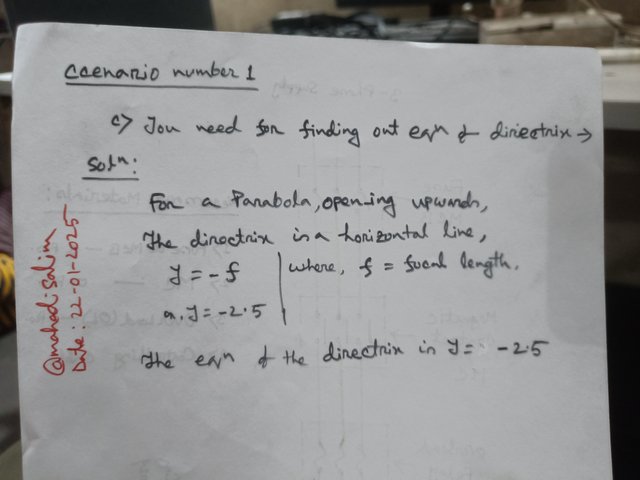 Ccenario number 1
c) You need for finding out eqn of directrix →
Soln:
For a Parabola, opening upwards,
The directrix is a horizontal line,
y = -f | where, f = focal length.
or, y = -2.5
The eqn of the directrix is y = -2.5
@mahedisalim
Date: 22-01-2025